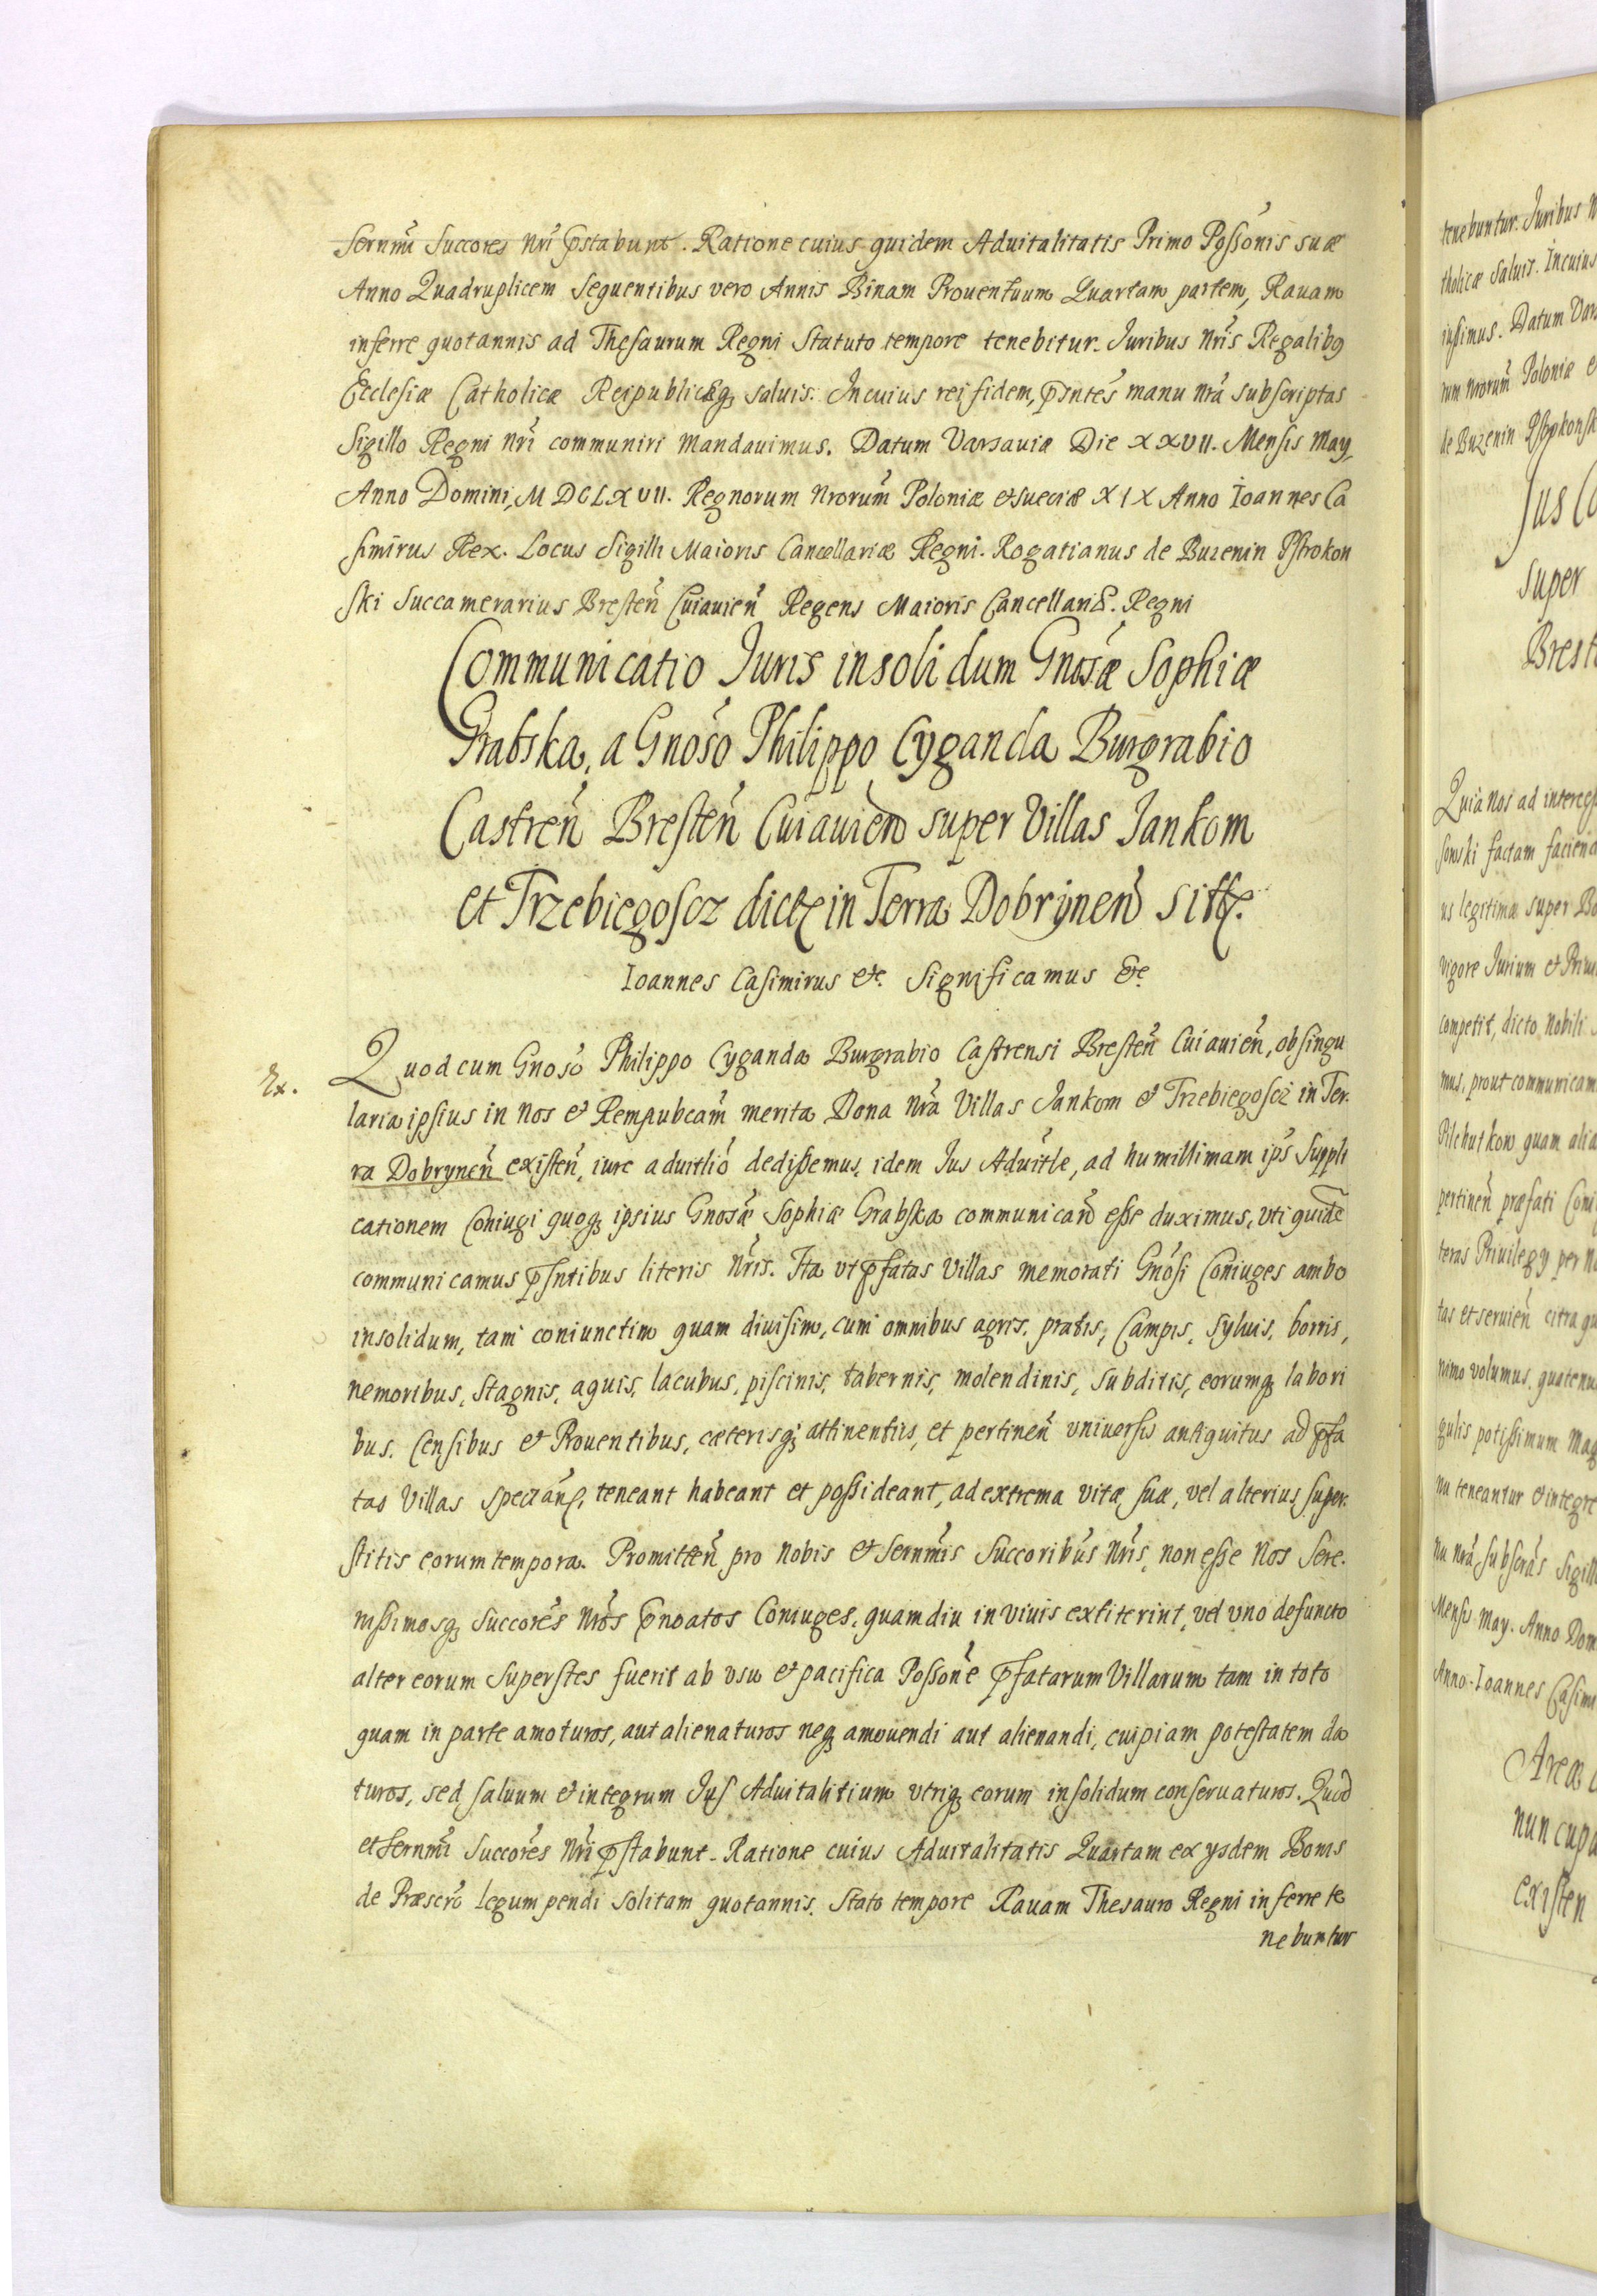 Sernmi Succores nri pstabunt. Ratione cuius quidem Aduitalitatis Primo Possonis suæ
Anno Quadruplicem sequentibus vero Annis Binam Prouentuum Quartam partem, Rauam
inferre quotannis ad Thesaurum Regni Statuto tempore tenebitur. Juribus nris Regalibq
Ecclesiæ Catholicæ Reipublicæq saluis. In cuius rei fidem, psntes manu nra subscriptas
Sigillo Regni nri communiri mandauimus. Datum Varsauiæ Die XXVII. Mensis May,
Anno Domini, MDCLXVII. Regnorum nrorum Poloniæ et Sueciæ XIX Anno Ioannes Ca
simirus Rex. Locus Sigilli Maioris Cancellariæ Regni. Rogatianus de Buzenin Pstrokon
ski Succamerarius Bresten Cuiauien Regens Maioris Cancellariæ. Regni
Communicatio Juris insolidum Gnosæ Sophiæ
Grabska, a Gnoso Philippo Cyganda Burgrabio
Castren Bresten Cuiauien super Villas Jankom
et Trzebiegoscz dict in Terra Dobrynen sitt.
Ioannes Casimirus etc. Significamus etc.
Ex.
Quod cum Gnoso Philippo Cyganda Burgrabio Castrensi Bresten Cuiauien, ob singu
laria ipsius in nos et Rempubcam merita Bona nra Villas Jankom et Trzebiegoscz in Ter.
ra Dobrynen existen, iure aduitlio dedissemus, idem Jus Aduitle, ad humillimam ips suppli
cationem Coniugi quoq ipsius Gnosæ Sophiæ Grabska communicand esse duximus, vti quide
communicamus psntibus literis nris. Ita vt pfatas Villas memorati Gnosi Coniuges ambo
insolidum, tam coniunctim quam diuisim, cum omnibus agris, pratis, Campis, syluis, borris,
nemoribus, stagnis, aquis, lacubus, piscinis, tabernis, molendinis, subditis, eorumq labori
bus, Censibus et Prouentibus, cæterisq attinentiis, et pertinen vniuersis antiquitus ad pfa
tas Villas spectan, teneant habeant et possideant, ad extrema vitæ suæ, vel alterius super.
stitis eorum tempora. Promitten pro nobis et Sernmis Succoribus nris, non esse Nos Sere.
nissimosq succores nros pnoatos Coniuges, quamdiu in viuis extiterint, vel vno defuncto
alter eorum superstes fuerit ab vsu et pacifica Possone pfatarum Villarum tam in toto
quam in parte amoturos, aut alienaturos neq amouendi aut alienandi, cuipiam potestatem da
turos, sed saluum et integrum Jus Aduitalitium vtriq eorum insolidum conseruaturos. Quod
et Sernmi Succores nri pstabunt. Ratione cuius Aduitalitatis Quartam ex ysdem Bonis
de Præscro legum pendi solitam quotannis, stato tempore Rauam Thesauro Regni inferre te
nebuntur
tenebuntur. Juribus
tholicæ saluis. In cuius
iussimus. Datum
rum nrorum Poloniæ
de Buzenin Pstrokonsk
Jus
super
Brest
Quia nos ad
sowski factam
us legitimæ super
vigore Jurium et
competit, dicto Nobili
mus, prout communicam
quam alia
pertinen præfati
teras Priuilegy per
tas et seruien citra
nimo volumus, quatenu
gulis potissimum
nu teneantur et integre
nu nra subscras Sigill
Mensis May. Anno Dom
Anno. Ioannes Casim
Areæ
nuncup
existen